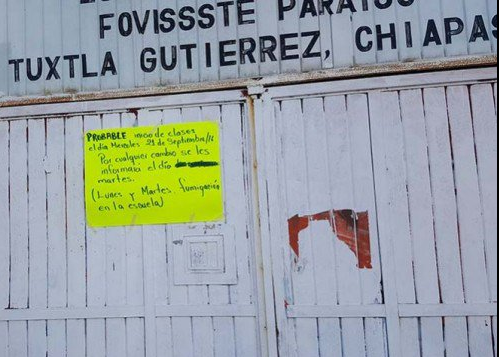 FOVISSSTE PARAISO
TUXTLA GUTIERREZ, CHIAPAS
PROBABLE inicio de clases
el día Miercoles 21 de Septiembre/16
Por cualquier cambio se les
informara el día
martes.
(Lunes y Martes fumigación
en la escuela)